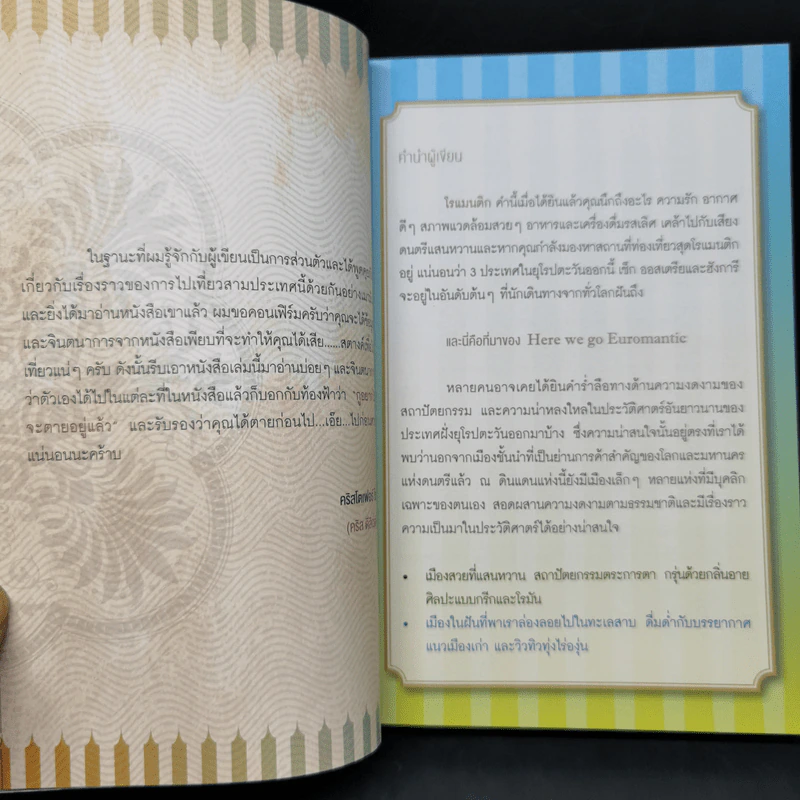 ในฐานะที่ผมรู้จักกับผู้เขียนเป็นการส่วนตัวและได้พูดคุย
เกี่ยวกับเรื่องราวของการไปเที่ยวสามประเทศนี้ด้วยกันอย่าง
และยิ่งได้มาอ่านหนังสือเขาแล้ว ผมขอคอนเฟิร์มครับว่าคุณจะได้
และจินตนาการจากหนังสือเพียบที่จะทำให้คุณได้เสีย......สตางค์
เที่ยวแน่ๆ ครับ ดังนั้นรีบเอาหนังสือเล่มนี้มาอ่านบ่อยๆ และ
ว่าตัวเองได้ไปในแต่ละที่ในหนังสือแล้วก็บอกกับท้องฟ้าว่า
จะตายอยู่แล้ว" และรับรองว่าคุณได้ตายก่อนไป...เอ๊ย...ไปก่อน
แน่นอนนะคร้าบ
คริสโตเฟอร์
(คริส
คำนำผู้เขียน
โรแมนติก คำนี้เมื่อได้ยินแล้วคุณนึกถึงอะไร ความรัก อากาศ
ดีๆ สภาพแวดล้อมสวยๆ อาหารและเครื่องดื่มรสเลิศ เคล้าไปกับเสียง
ดนตรีแสนหวานและหากคุณกำลังมองหาสถานที่ท่องเที่ยวสุดโรแมนติก
อยู่ แน่นอนว่า 3 ประเทศในยุโรปตะวันออกนี้ เช็ก ออสเตรียและฮังการี
จะอยู่ในอันดับต้นๆ ที่นักเดินทางจากทั่วโลกฝันถึง
และนี่คือที่มาของ Here we go Euromantic
หลายคนอาจเคยได้ยินคำร่ำลือทางด้านความงดงามของ
สถาปัตยกรรม และความน่าหลงใหลในประวัติศาสตร์อันยาวนานของ
ประเทศฝั่งยุโรปตะวันออกมาบ้าง ซึ่งความน่าสนใจนั้นอยู่ตรงที่เราได้
พบว่านอกจากเมืองชั้นนำที่เป็นย่านการค้าสำคัญของโลกและมหานคร
แห่งดนตรีแล้ว ณ ดินแดนแห่งนี้ยังมีเมืองเล็กๆ หลายแห่งที่มีบุคลิก
เฉพาะของตนเอง สอดผสานความงดงามตามธรรมชาติและมีเรื่องราว
ความเป็นมาในประวัติศาสตร์ได้อย่างน่าสนใจ
• เมืองสวยที่แสนหวาน สถาปัตยกรรมตระการตา กรุ่นด้วยกลิ่นอาย
ศิลปะแบบกรีกและโรมัน
• เมืองในฝันที่พาเราล่องลอยไปในทะเลสาบ ดื่มด่ำกับบรรยากาศ
แนวเมืองเก่า และวิวทิวทุ่งไร่องุ่น